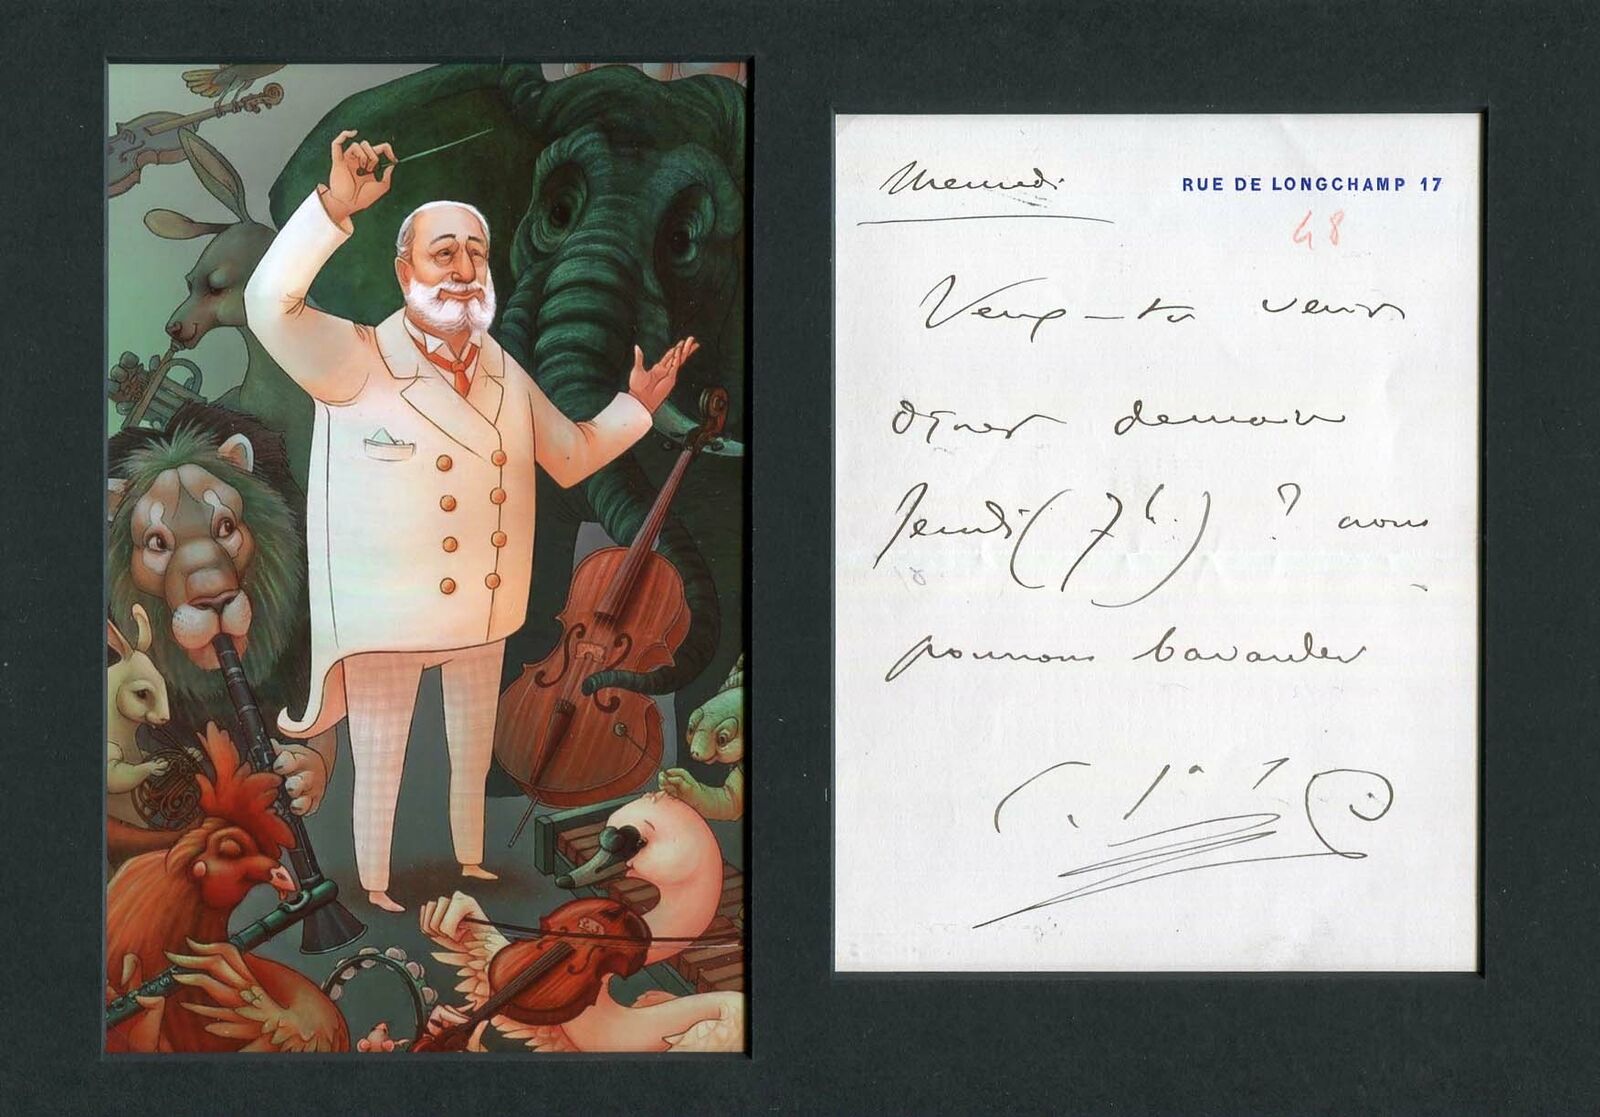 Mercredi
RUE DE LONGCHAMP 17
48
Veux-tu venir
dîner demain
Jeudi (7h.) ? nous
pourrons bavarder
C. S<sup>t</sup> S